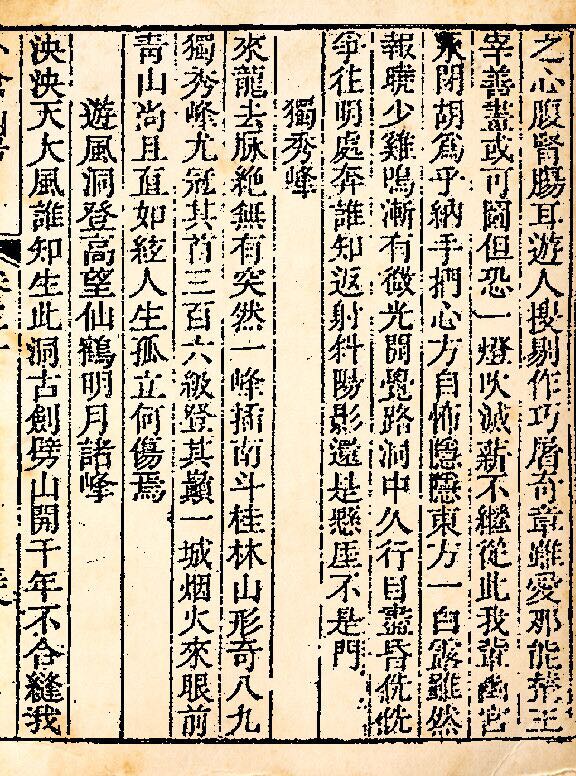 之心腹腎腸耳遊人搜剔作巧屠奇章雖愛那能輦王
宰善畫或可圖但恐一燈吹滅新不繼從此我輩幽宮
永閉胡為乎納手捫心方自怖隱隱東方一白露雖然
報曉少雞鳴漸有微光開覺路洞中久行目盡昏侊侊
爭往明處奔誰知返射斜陽影還是懸厓不是門
獨秀峰
來龍去脉絕無有突然一峰插南斗桂林山形奇八九
獨秀峰尤冠其首三百六級登其巔一城烟火來眼前
青山尚且直如絃人生孤立何傷焉
遊風洞登高望仙鶴明月諸峰
泱泱天大風誰知生此洞古劍劈山開千年不合縫我